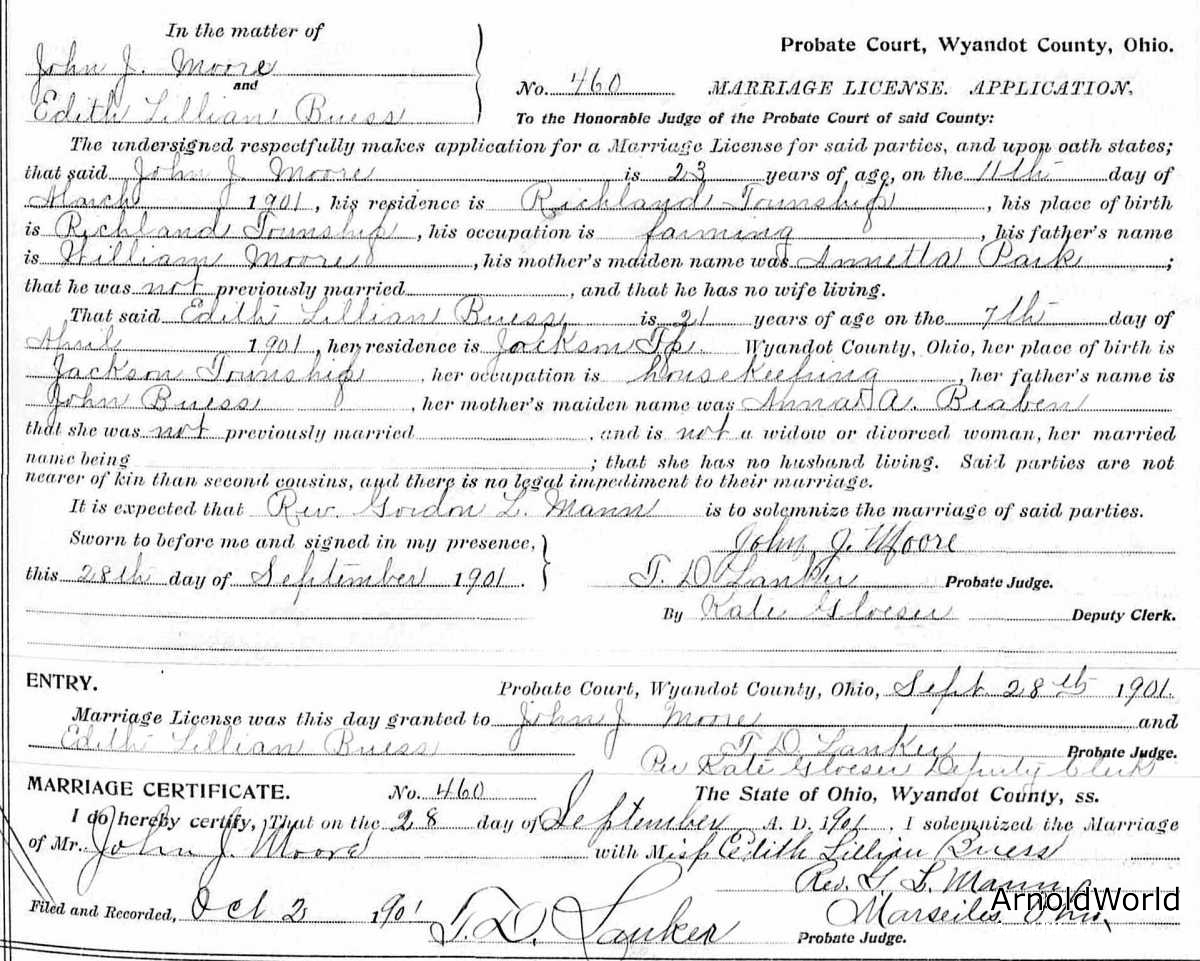 In the matter of
John J. Moore
and
Edith Lillian Buess
Probate Court, Wyandot County, Ohio.
No. 460 MARRIAGE LICENSE. APPLICATION,
To the Honorable Judge of the Probate Court of said County:
The undersigned respectfully makes application for a Marriage License for said parties, and upon oath states;
that said John J. Moore is 23 years of age, on the 11th day of
March 1901, his residence is Richland Township, his place of birth
is Richland Township, his occupation is farming, his father's name
is William Moore, his mother's maiden name was Annetta Park;
that he was not previously married, and that he has no wife living.
That said Edith Lillian Buess is 21 years of age on the 7th day of
April 1901, her residence is Jackson Tp. Wyandot County, Ohio, her place of birth is
Jackson Township, her occupation is housekeeping, her father's name is
John Buess, her mother's maiden name was Anna A. Beaben
that she was not previously married, and is not a widow or divorced woman, her married
name being; that she has no husband living. Said parties are not
nearer of kin than second cousins, and there is no legal impediment to their marriage.
It is expected that Rev. Gordon L. Mann is to solemnize the marriage of said parties.
Sworn to before me and signed in my presence, John J. Moore
this 28th day of September 1901. T. D. Lanker Probate Judge.
By Kate Gloeser Deputy Clerk.
ENTRY. Probate Court, Wyandot County, Ohio, Sept 28th 1901.
Marriage License was this day granted to John J Moore and
Edith Lillian Buess T. D. Lanker Probate Judge.
Per Kate Gloeser Deputy Clerk
MARRIAGE CERTIFICATE. No. 460 The State of Ohio, Wyandot County, ss.
I do hereby certify, That on the 28 day of September A. D. 1901, I solemnized the Marriage
of Mr. John J. Moore with Miss Edith Lillian Buess
Rev. G. L. Mann
ArnoldWorld
Marseiles Ohio,
Filed and Recorded, Oct 2 1901 T. D. Lanker Probate Judge.